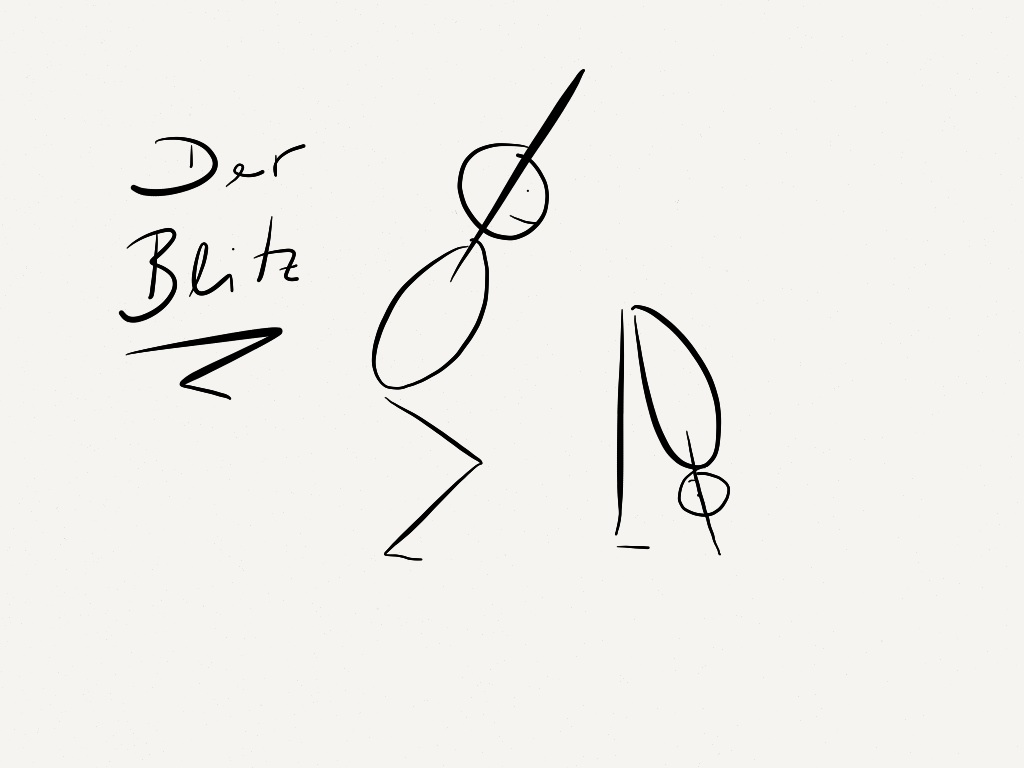 Der
Blitz